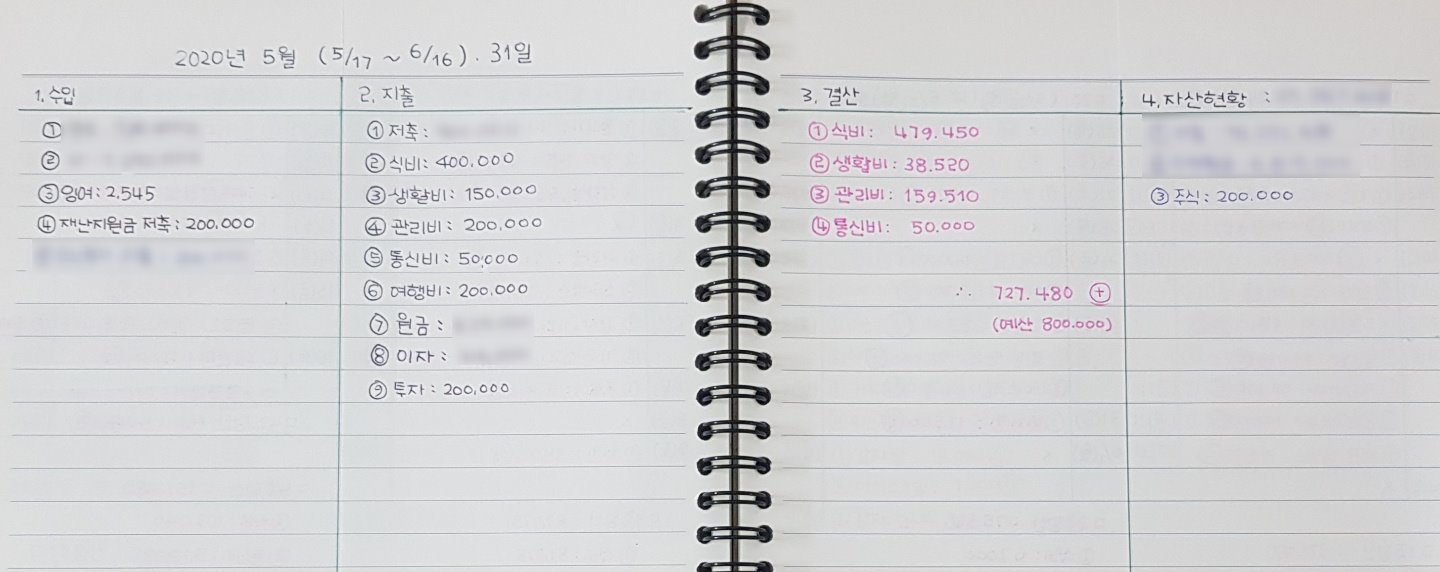 2020년 5월 (5/17 ~ 6/16). 31일
1. 수입
①
②
③ 잉여: 2.545
④ 재난지원금 저축: 200.000
2. 지출
① 저축:
② 식비: 400.000
③ 생활비: 150.000
④ 관리비: 200.000
⑤ 통신비: 50.000
⑥ 여행비: 200.000
⑦ 원금:
⑧ 이자:
⑨ 투자: 200.000
3. 결산
① 식비: 479.450
② 생활비: 38.520
③ 관리비: 159.510
④ 통신비: 50.000
∴ 727.480 ⊕
(예산 800.000)
4. 자산현황 :
③ 주식: 200.000